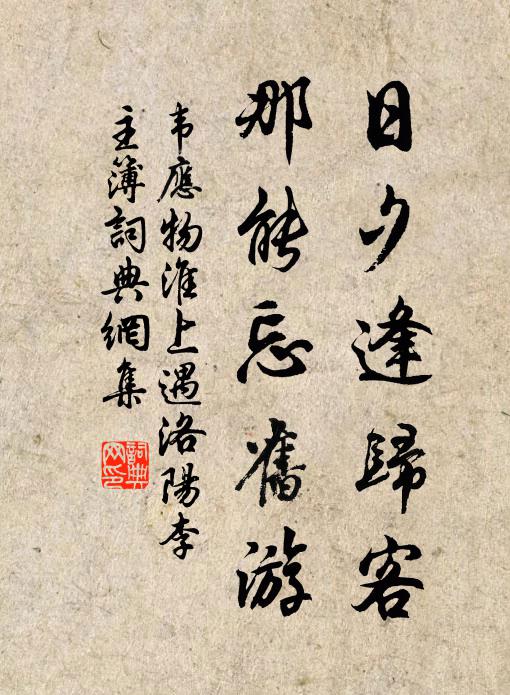 日夕逢歸客
那能忘舊游
韦應物淮上遇洛陽李
主簿詞典網集
詞典網印